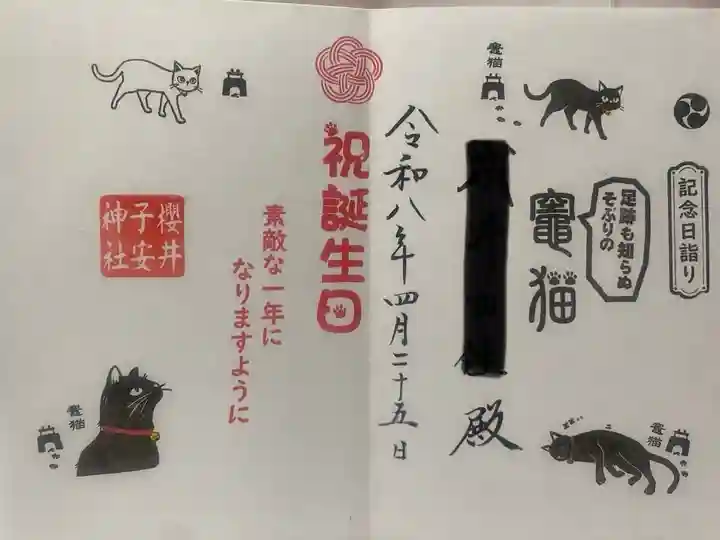 記念日詣り
足跡も知らぬ
そぶりの
竈猫
竈猫
竈猫
殿
令和八年四月二十五日
祝誕生日
素敵な一年に
なりますように
櫻井
子安
神社
竈猫